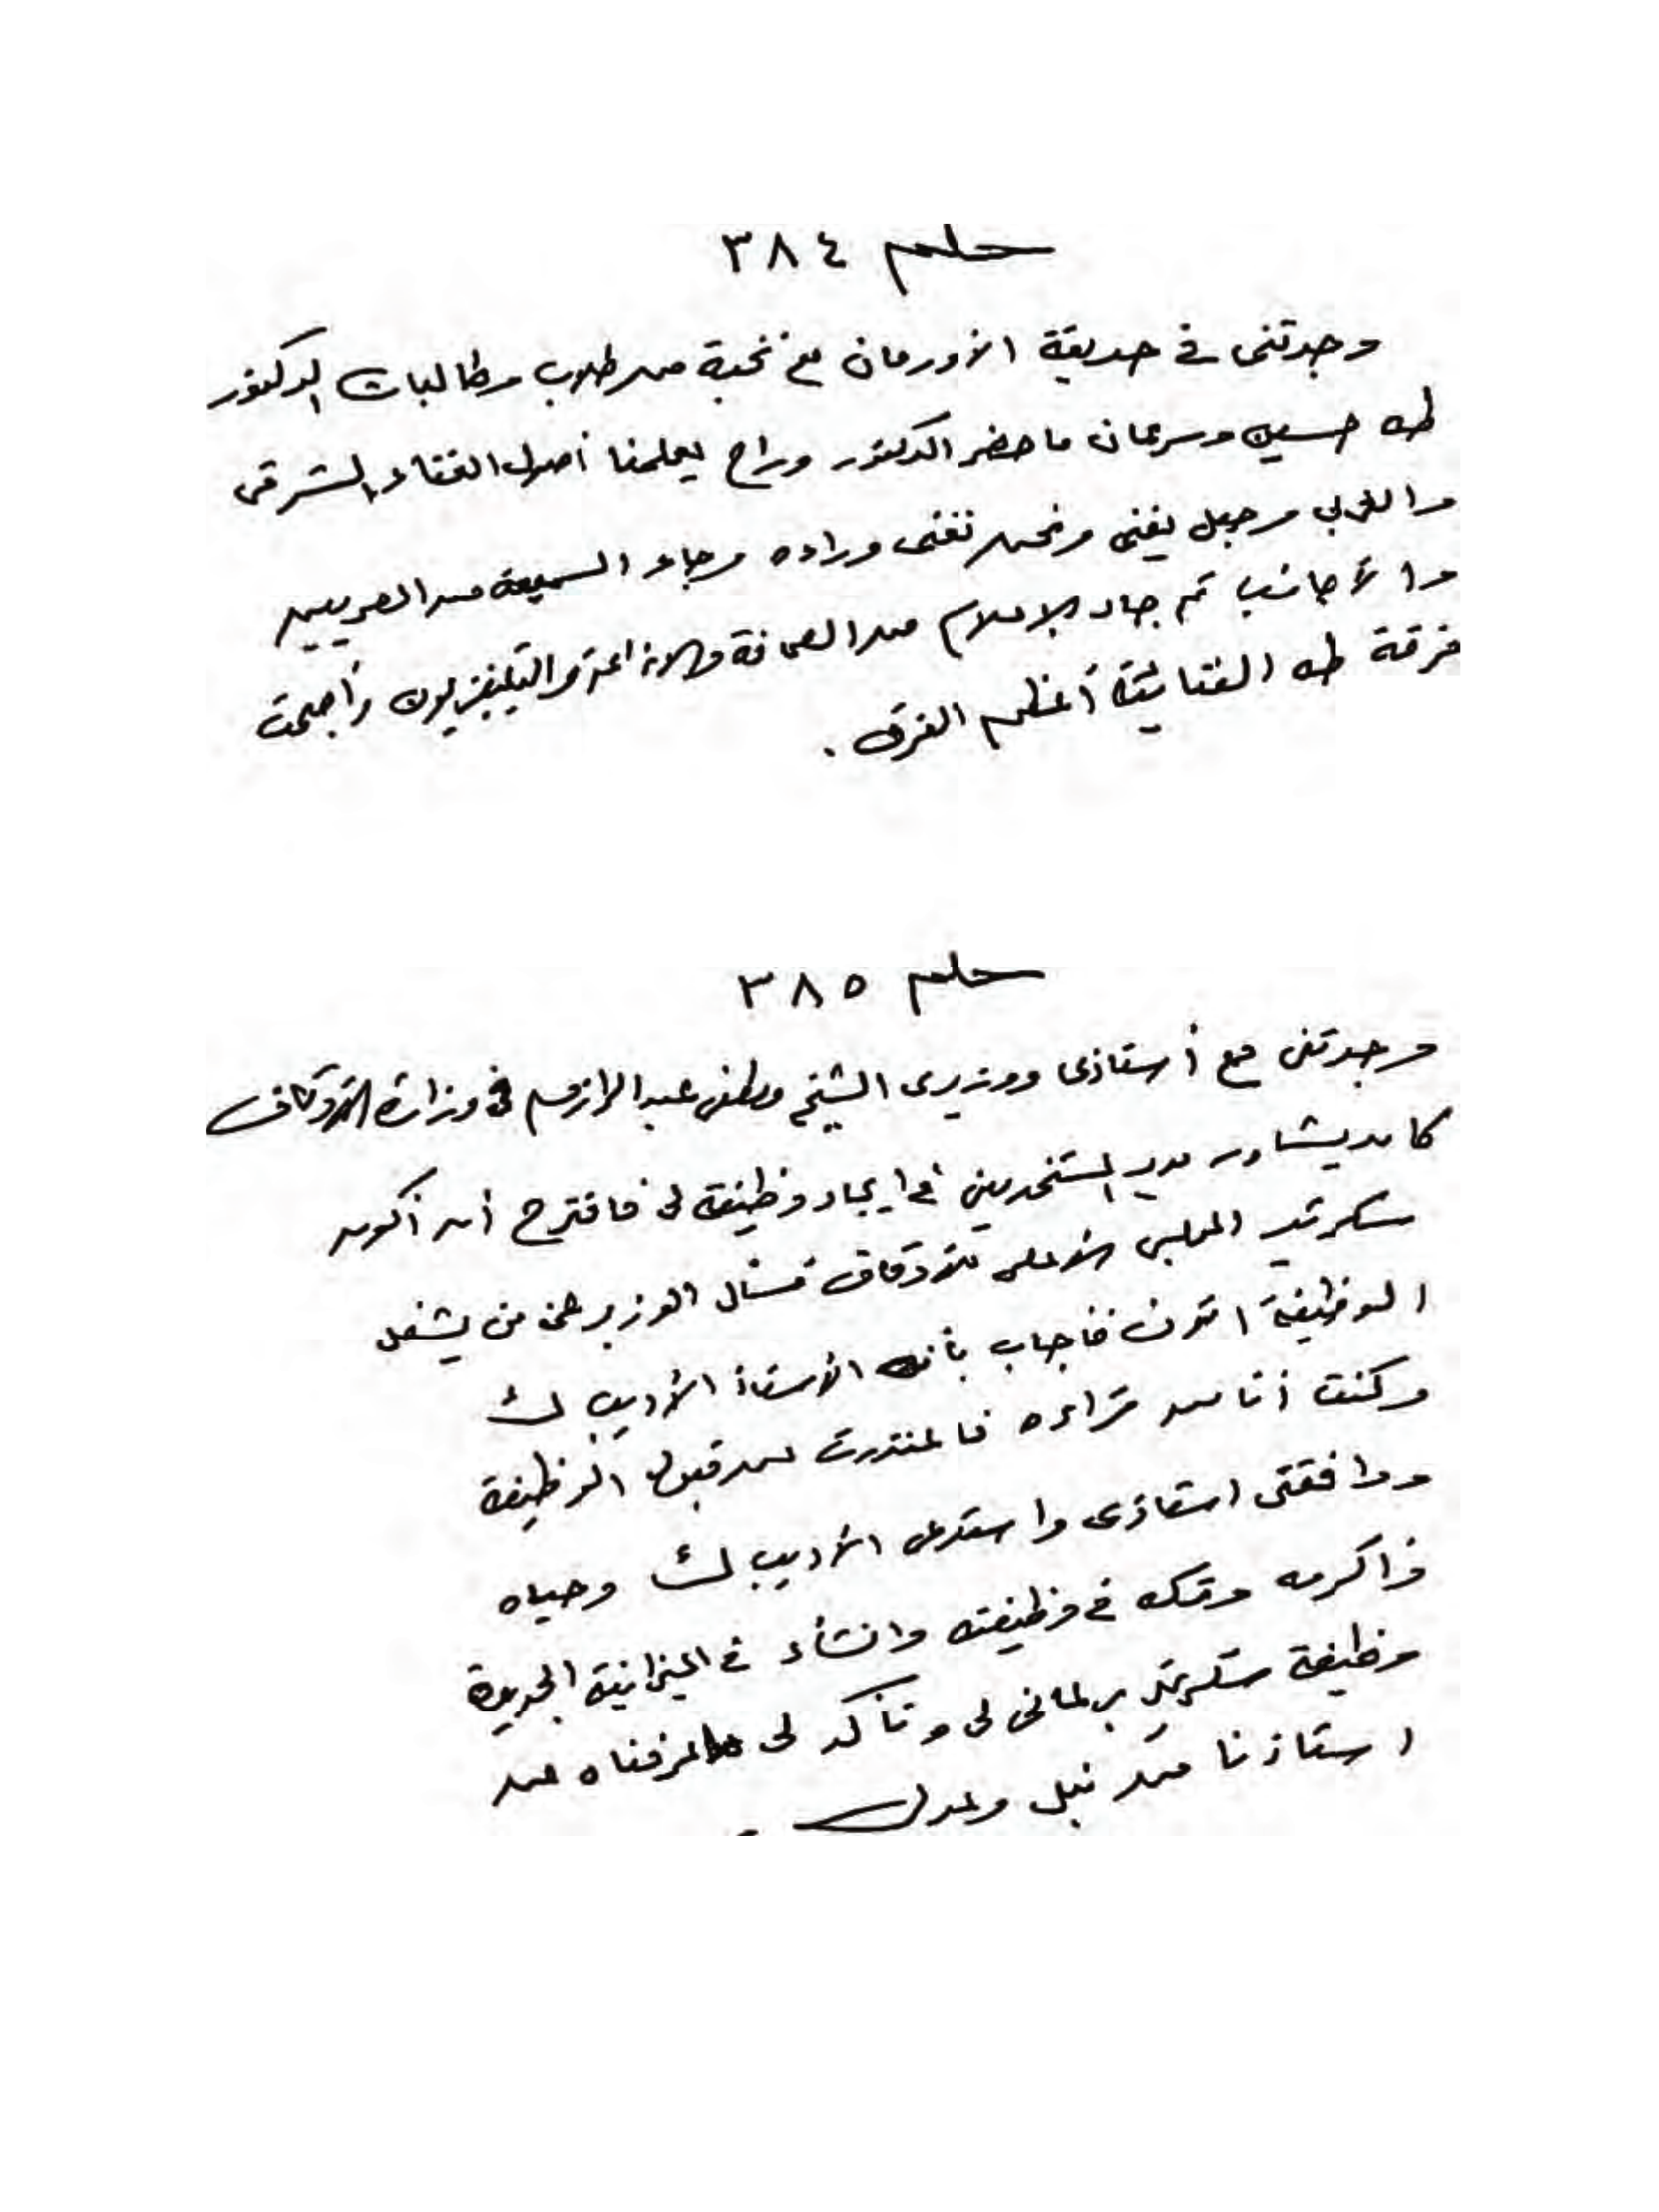 حلم ٣٨٤
وجدتنى فى حديقة الأورمان مع نخبة من طلاب وطالبات الدكتور
طه حسين وسرعان ما حضر الدكتور وراح يعلمنا أصول الغناء الشرقى
والغربى وجعل يغنى ونحن نغنى وراءه وجاء السميعة من المصريين
والأجانب ثم جاء الإعلام من الصحافة والإذاعة والتليفزيون وأصبحت
فرقة طه الغنائية أعظم الفرق .
حلم ٣٨٥
وجدتنى مع أستاذى ووزيرى الشيخ مصطفى عبد الرازق فى وزارة الأوقاف
كان يشاور مدير المستخدمين فى ايجاد وظيفة لى فاقترح أن أكون
سكرتير المجلس الأعلى للأوقاف فسأل الوزير عمن يشغل
الوظيفة الآن فأجاب بأنه الأستاذ الأديب
وكنت أنا من قراءه فاعتذرت عن قبول الوظيفة
ووافقنى استاذى واستدعى الأديب وحياه
واكرمه وتركه فى وظيفته وانشأ فى الميزانية الجديدة
وظيفة سكرتير برلمانى لى وتأكد لى ما عرفناه عن
استاذنا من نبل وعدل